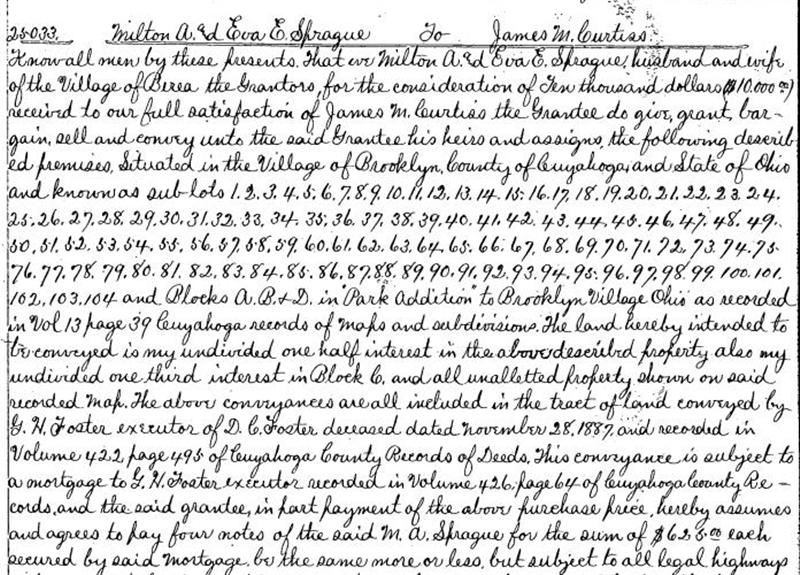 25033. Milton A. & Eva E. Sprague To James M. Curtiss.
Know all men by these presents. That we Milton A. & Eva E. Sprague, husband and wife
of the Village of Berea the Grantors, for the consideration of Ten thousand dollars ($10.000 00)
received to our full satisfaction of James M. Curtiss the Grantee do give, grant, bar-
gain, sell and convey unto the said Grantee his heirs and assigns, the following describ
ed premises, Situated in the Village of Brooklyn, County of Cuyahoga, and State of Ohio
and known as sub lots 1.2.3.4.5.6.7.8.9.10.11.12.13.14.15.16.17.18.19.20.21.22.23.24.
25.26.27.28.29.30.31.32.33.34.35.36.37.38.39.40.41.42.43.44.45.46.47.48.49.
50.51.52.53.54.55.56.57.58.59.60.61.62.63.64.65.66.67.68.69.70.71.72.73.74.75.
76.77.78.79.80.81.82.83.84.85.86.87.88.89.90.91.92.93.94.95.96.97.98.99.100.101.
102,103,104 and Blocks A. B. & D. in "Park Addition" to Brooklyn Village Ohio as recorded
in Vol 13 page 39 Cuyahoga records of maps and subdivisions. The land hereby intended to
be conveyed is my undivided one half interest in the above described property also my
undivided one third interest in Block C. and all unalletted property shown on said
recorded Map. The above conveyances are all included in the tract of land conveyed by
G. H. Foster executor of D. C. Foster deceased dated November 28, 1887, and recorded in
Volume 422, page 495 of Cuyahoga County Records of Deeds. This conveyance is subject to
a mortgage to G. H. Foster executor recorded in Volume 426, page 64 of Cuyahoga County Re-
cords, and the said grantee, in part payment of the above purchase price, hereby assumes
and agrees to pay four notes of the said M. A. Sprague for the sum of $625.00 each
secured by said Mortgage, be the same more or less, but subject to all legal highways